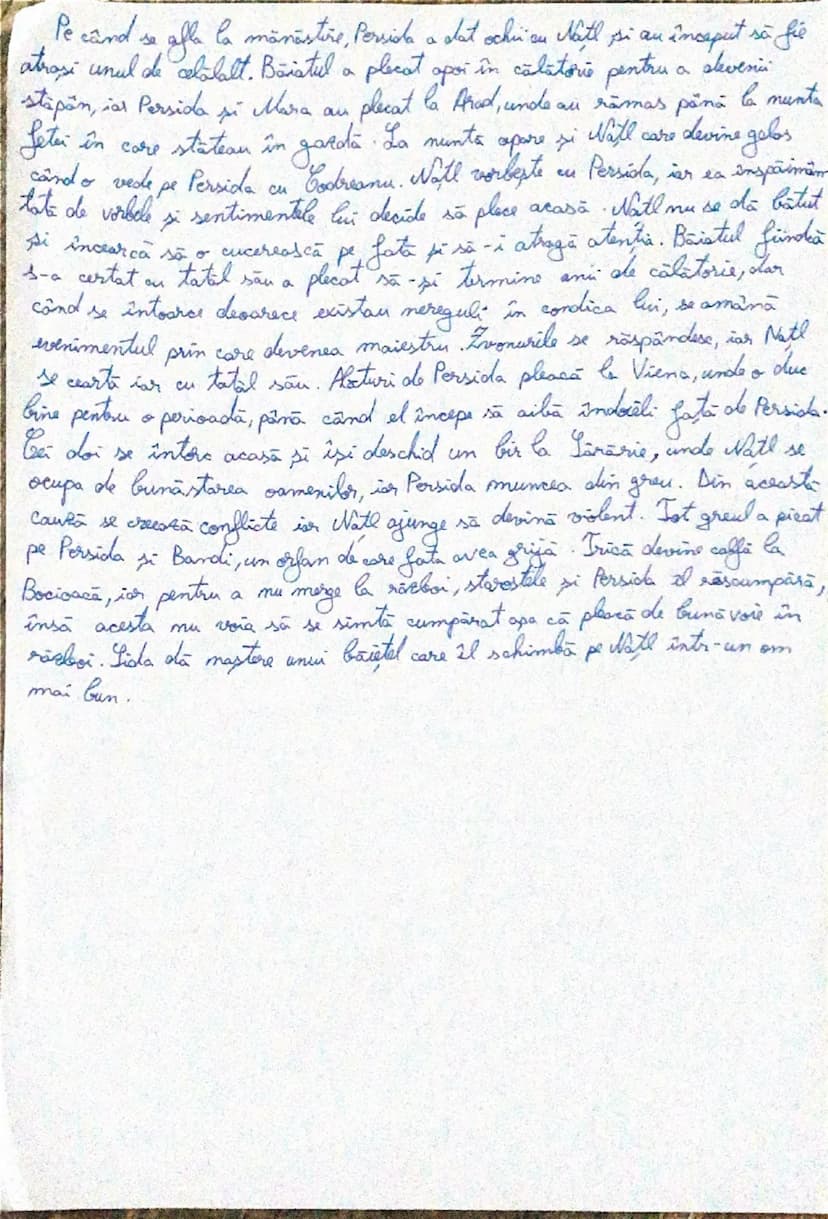 Pe când se afla la mănăstire, Persida a dat ochii cu Națl și au început să fie
atrași unul de celălalt. Băiatul a plecat apoi în călătorie pentru a devenii
stăpân, iar Persida și Mara au plecat la Arad, unde au rămas până la nunta
fetei în care stăteau în gazdă. La nuntă apare și Națl care devine gelos
când o vede pe Persida cu Codreanu. Națl vorbește cu Persida, iar ea înspăimân
tată de vorbele și sentimentele lui decide să plece acasă. Natl nu se dă bătut
și încearcă să o cucerească pe fată și să-i atragă atenția. Băiatul fiindcă
s-a certat cu tatăl său a plecat să-și termine anii de călătorie, dar
când se întoarce deoarece existau nereguli în condica lui, se amână
evenimentul prin care devenea maiestru. Zvonurile se răspândesc, iar Națl
se ceartă iar cu tatăl său. Alături de Persida pleacă la Viena, unde o duc
bine pentru o perioadă, până când el începe să aibă îndoieli față de Persida.
Cei doi se întorc acasă și își deschid un bir la Sărărie, unde Națl se
ocupa de bunăstarea oamenilor, iar Persida muncea din greu. Din această
cauză se crează conflicte iar Națl ajunge să devină violent. Tot greul a picat
pe Persida și Bandi, un orfan de care fata avea grijă. Trică devine calfă la
Bocioacă, iar pentru a nu merge la război, starostele și Persida îl răscumpără,
însă acesta nu voia să se simtă cumpărat așa că pleacă de bunăvoie în
război. Sida dă naștere unui băiețel care îl schimbă pe Națl într-un om
mai bun.